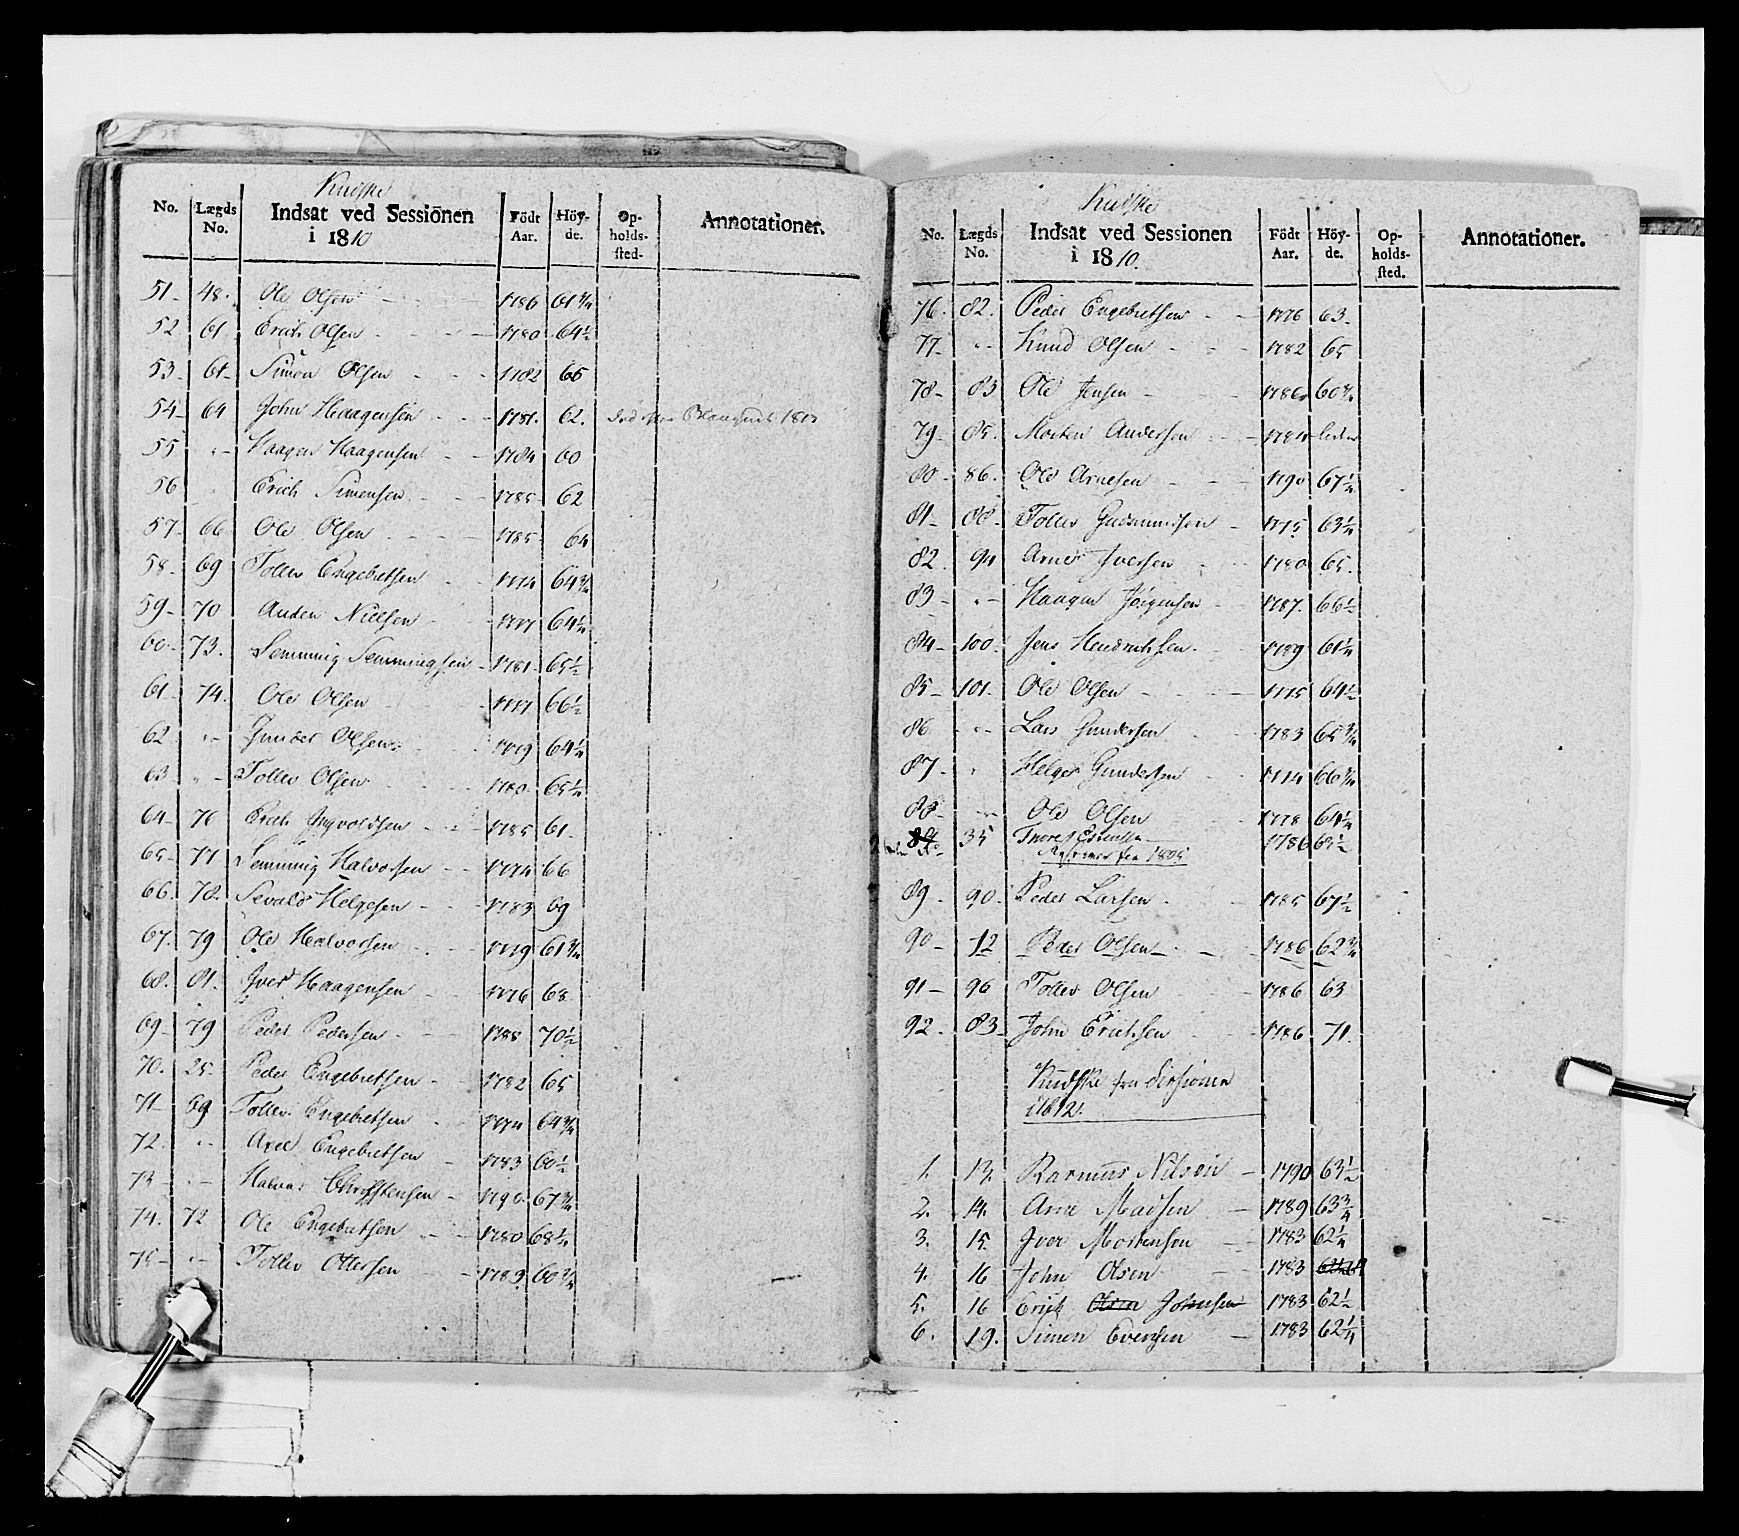 Kudske
No. Lægds No. Indsat ved Sessionen i 1810 Födt Aar. Höy-de. Op-holds-sted. Annotationer.
51 48. Ole Olsen 1786 61 3/4
52 61 Erich Olsen 1780 64 1/2
53 61 Simen Olsen 1782 65
54 64 John Haagensen 1781. 62.
55 "- Haagen Haagensen 1784 60
56 Erich Simensen 1785 62
57 66 Ole Olsen 1785 64
58 69 Tollev Engebretsen 1774 64 3/4
59 70 Anders Nielsen 1777 64 1/4
60 73. Semming Semmingsen 1781 65 1/2
61 74. Ole Olsen 1777 66 1/2
62 "- Gunder Olsen 1779 64 1/4
63 "- Tollev Olsen 1780 65 1/4
64 76 Erich Ingvoldsen 1785 61
65 77 Semming Halvorsen 1774 66
66 78. Sevald Helgesen 1783 69
67. 79 Ole Halvorsen 1779 61 3/4
68. 81. Iver Haagensen 1776 68
69 79 Peder Pedersen 1788 70 1/2
70. 25. Peder Engebretsen 1782 65
71 69 Tollev Engebretsen 1774 64 3/4
72. "- Axel Engebretsen 1783 60 1/2
73 "- Halvor Christensen 1790 67 3/4
74. 72 Ole Engebretsen 1780 68 1/4
75 "- Tollev Ottersen 1783 60 3/4
Kudske
No. Lægds No. Indsat ved Sessionen i 1810. Födt Aar. Höy-de. Op-holds-sted. Annotationer.
76. 82. Peder Engebretsen 1776 63
77 "- Knud Olsen 1782 65
78 83 Ole Jensen 1786 60 3/4
79 85. Morten Andersen 1784
80 86. Ole Arnesen 1790 67 1/4
81 88 Tollev Gudmundsen 1775 63 1/4
82 94 Arne Iversen 1780 65.
83 "- Haagen Jörgensen 1787. 66 1/2
84 100. Jens Hendrichsen 1789 61 1/4
85 101 Ole Olsen 1775 64 1/2
86 "- Lars Gundersen 1783 65 3/4
87 " Helge Gundersen 1774 66 3/4
88 "- Ole Olsen 1778 64 1/4
89 35 Thore 1786 63 1/2
fra 1805
89 90. Peder Larsen 1785 67 1/2
90 12 Peder Olsen 1786 62 3/4
91 96 Tollev Olsen 1786 63
92. 83 John Erichsen 1786. 71.
Kudske fra Sessionen
i 1812.
1. 13. Rasmus Nilsen 1790 63 1/2
2. 14. Arne Madsen 1789 63 3/4
3. 15. Iver Mortensen 1783 62 1/4
4. 16 John Olsen 1783
5. 16 Erick Olsen Johnsen 1783 62 1/2
6. 19. Simen Evensen 1783 62 1/4